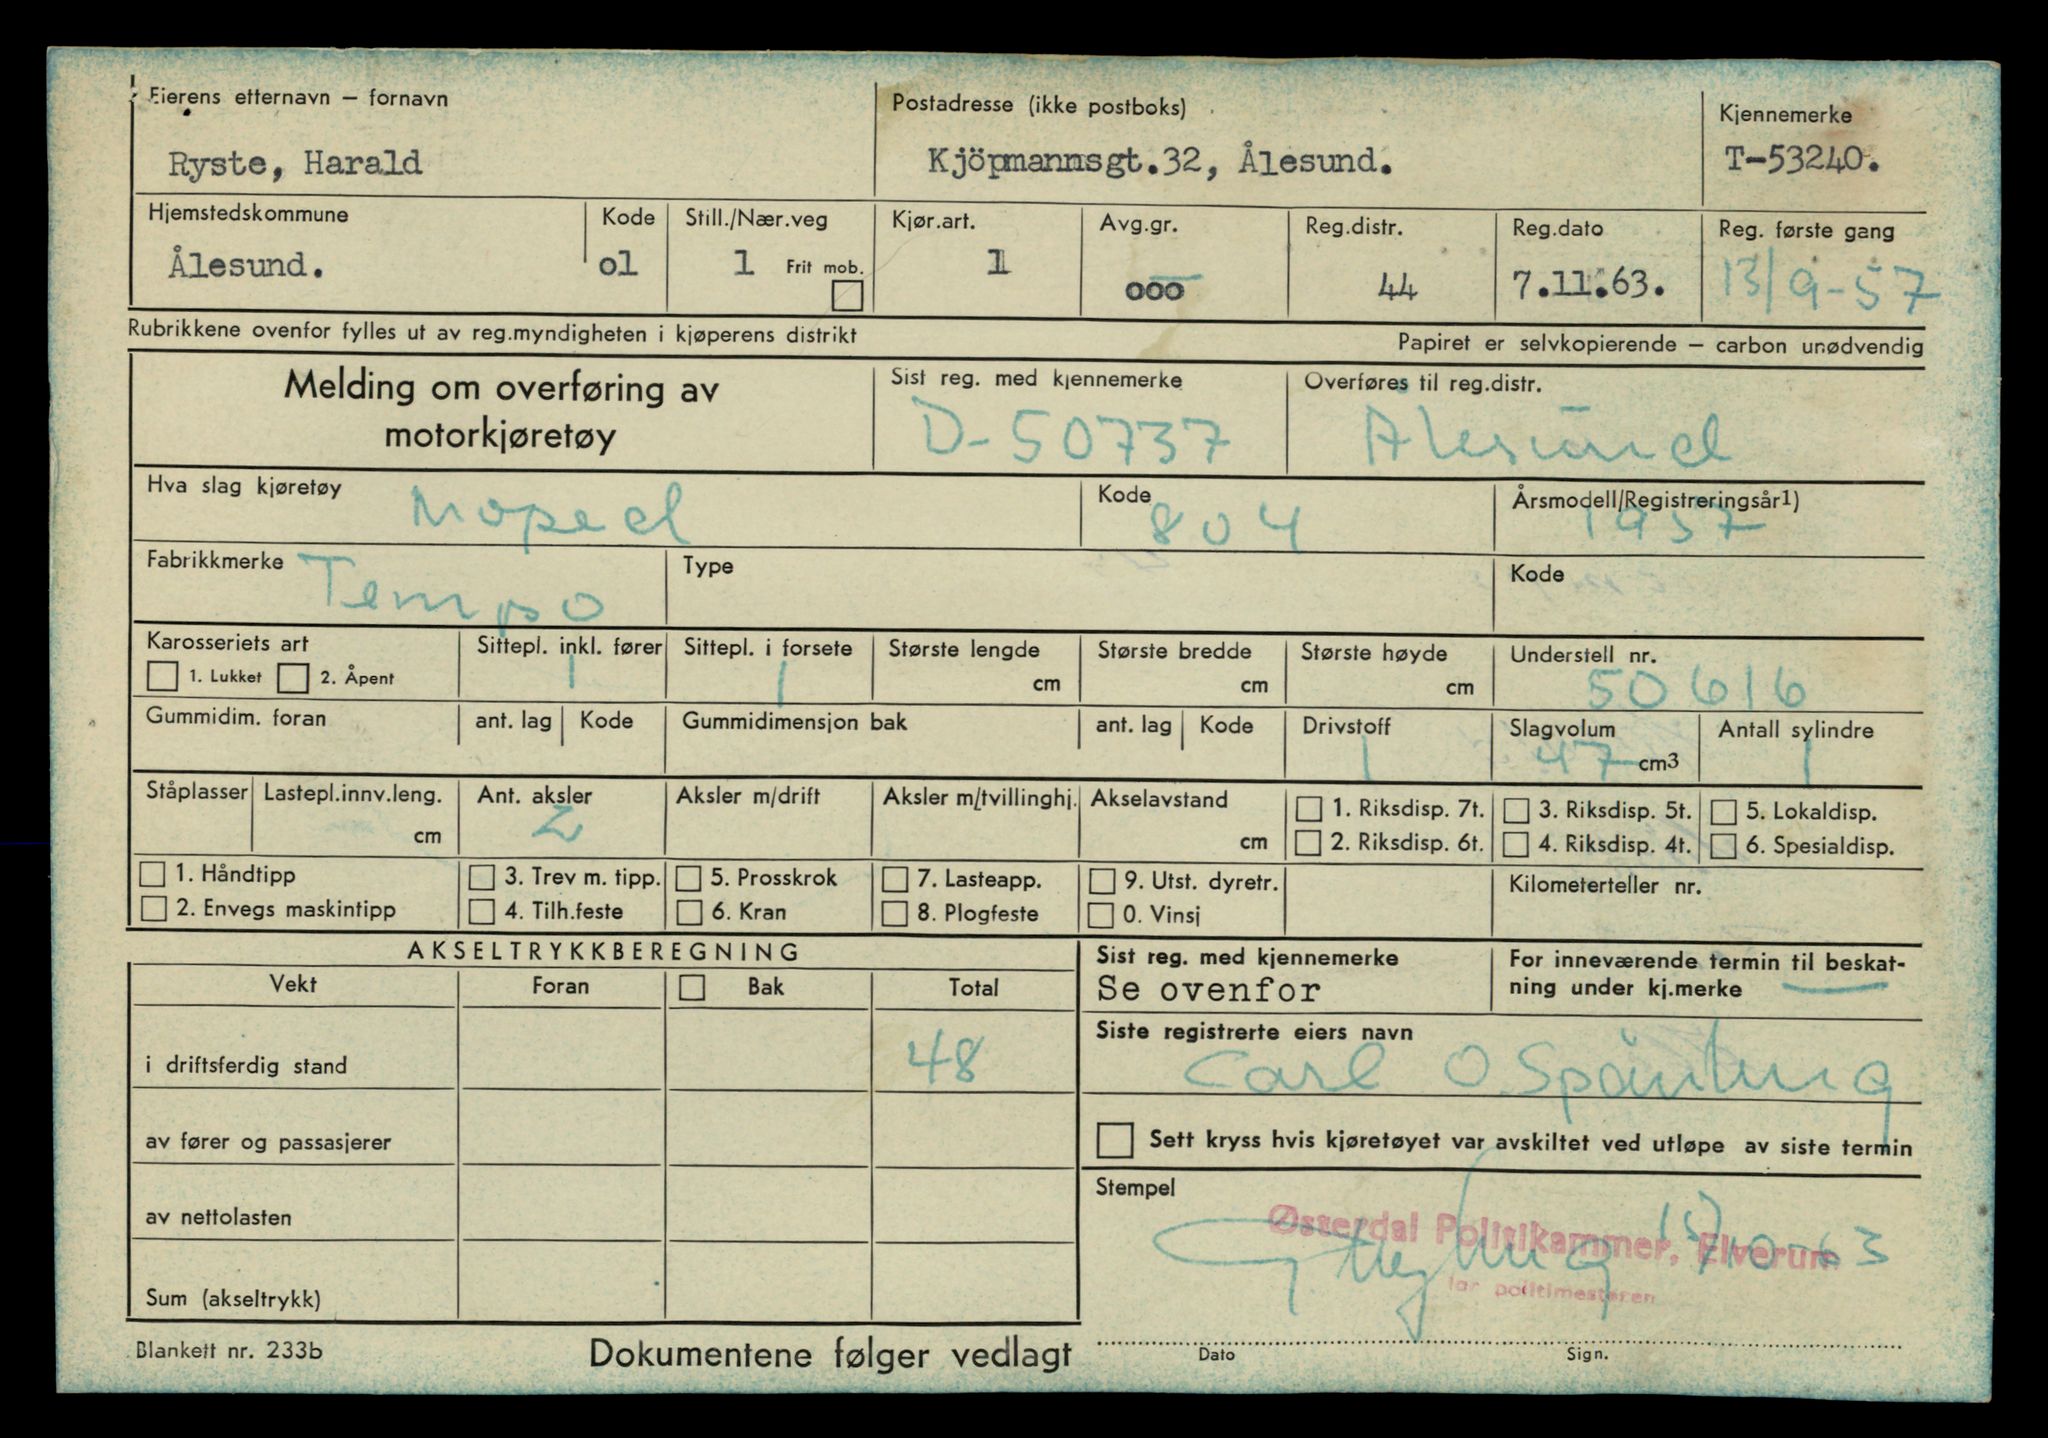 Eierens etternavn — fornavn
Postadresse (ikke postboks)
Kjennemerke
Ryste, Harald
Kjöpmannsgt.32, Ålesund.
T-53240.
Hjemstedskommune
Kode
Still./Nær.veg
Kjør.art.
Avg.gr.
Reg.distr.
Reg.dato
Reg. første gang
Ålesund.
01
1
Frit mob.
1
000
44
7.11.63.
13/9-57
Rubrikkene ovenfor fylles ut av reg.myndigheten i kjøperens distrikt
Papiret er selvkopierende — carbon unødvendig
Melding om overføring av
motorkjøretøy
Sist reg. med kjennemerke
D-50737
Overføres til reg.distr.
Ålesund
Hva slag kjøretøy
Moped
Kode
804
Årsmodell/Registreringsår1)
1957
Fabrikkmerke
Tempo
Type
Kode
Karosseriets art
1. Lukket
2. Åpent
Sittepl. inkl. fører
1
Sittepl. i forsete
1
Største lengde
cm
Største bredde
cm
Største høyde
cm
Understell nr.
50616
Gummidim. foran
ant. lag
Kode
Gummidimensjon bak
ant. lag
Kode
Drivstoff
1
Slagvolum
47 cm3
Antall sylindre
1
Ståplasser
Lastepl.innv.leng.
cm
Ant. aksler
2
Aksler m/drift
Aksler m/tvillinghj.
Akselavstand
cm
1. Riksdisp. 7t.
3. Riksdisp. 5t.
5. Lokaldisp.
2. Riksdisp. 6t.
4. Riksdisp. 4t.
6. Spesialdisp.
1. Håndtipp
3. Trev m. tipp.
5. Prosskrok
7. Lasteapp.
9. Utst. dyretr.
Kilometerteller nr.
2. Envegs maskintipp
4. Tilh.feste
6. Kran
8. Plogfeste
0. Vinsj
AKSELTRYKKBEREGNING
Vekt
Foran
Bak
Total
i driftsferdig stand
48
av fører og passasjerer
av nettolasten
Sum (akseltrykk)
Sist reg. med kjennemerke
Se ovenfor
For inneværende termin til beskat-
ning under kj.merke
Siste registrerte eiers navn
Carl O.
Sett kryss hvis kjøretøyet var avskiltet ved utløpe av siste termin
Stempel
Østerdal Politikammer, Elverum
for politimesteren
Dato
Sign.
Blankett nr. 233b
Dokumentene følger vedlagt